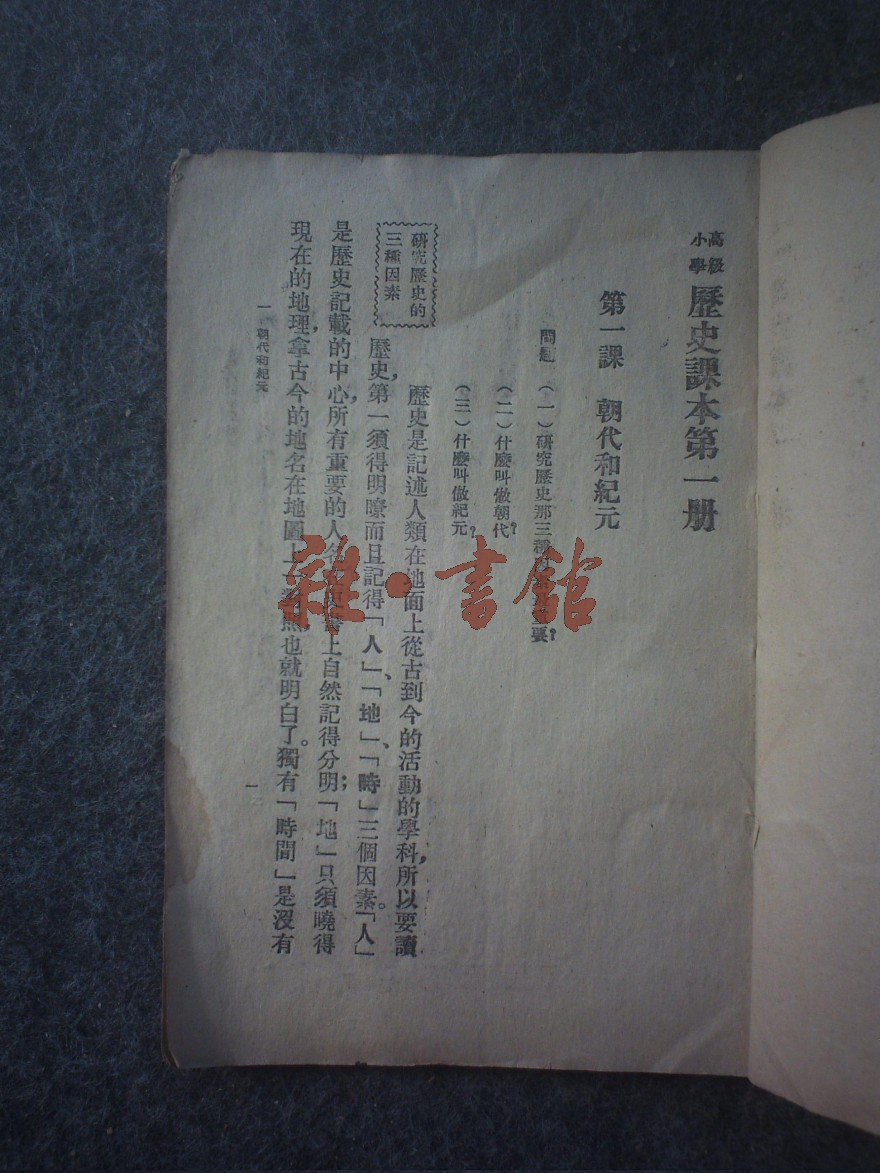 高級
小學
歷史課本第一册
第一課 朝代和紀元
問題 (一)研究歷史那三種要?
(二)什麼叫做朝代?
(三)什麼叫做紀元?
研究歷史的
三種因素
歷史是記述人類在地面上從古到今的活動的學科,所以要讀
歷史,第一須得明瞭而且記得「人」、「地」、「時」三個因素。「人」
是歷史記載的中心,所有重要的人名上自然記得分明;「地」只須曉得
現在的地理,拿古今的地名在地圖上一對照,也就明白了。獨有「時間」是沒有
一 朝代和紀元
一
雜·書館